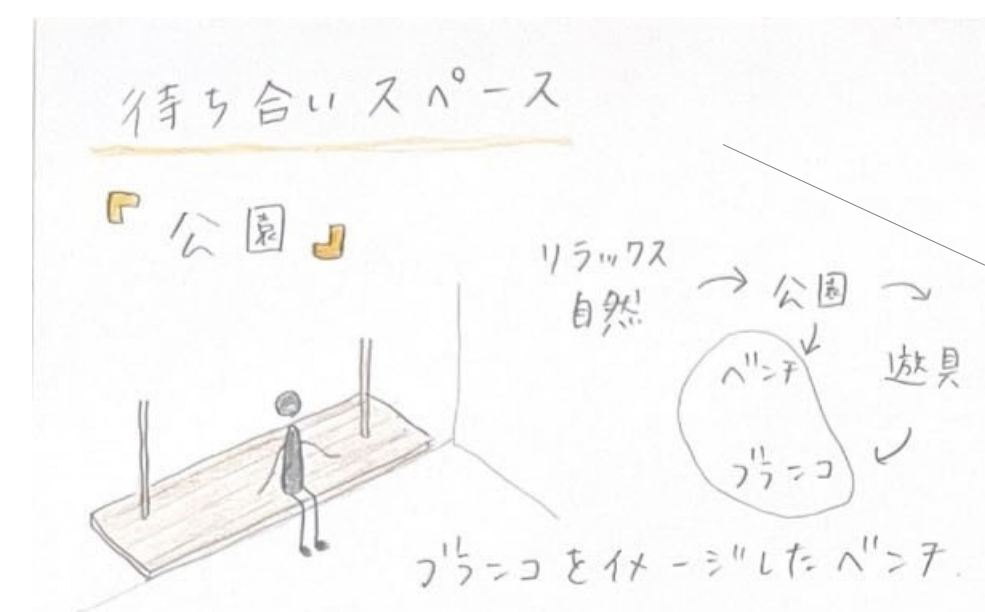 待ち合いスペース
『公園』
リラックス
自然
→ 公園 →
ベンチ
遊具
ブランコ
ブランコをイメージしたベンチ.